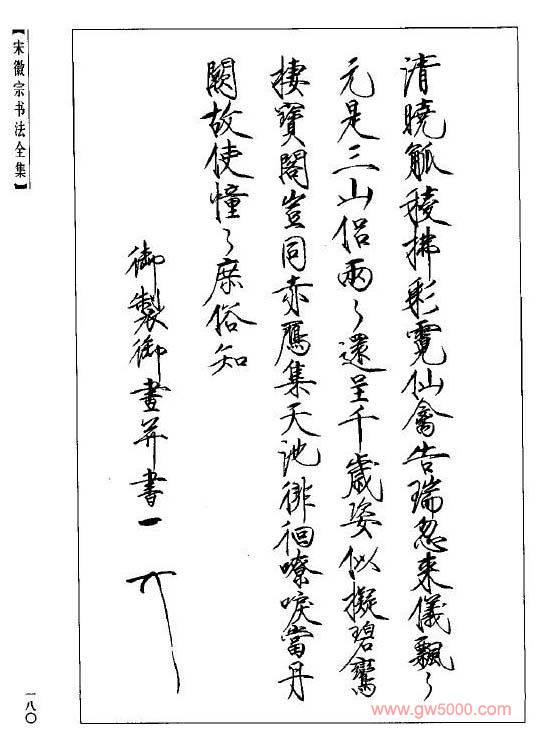 清曉觚稜拂彩霓仙禽告瑞忽來儀飄〻
元是三山侶兩〻還呈千歲姿似擬碧鸞
棲寶閣豈同赤鴈集天池徘徊嘹唳當丹
闕故使憧〻庶俗知
御製御畫并書一
【宋徽宗书法全集】
一八〇
www.gw5000.com